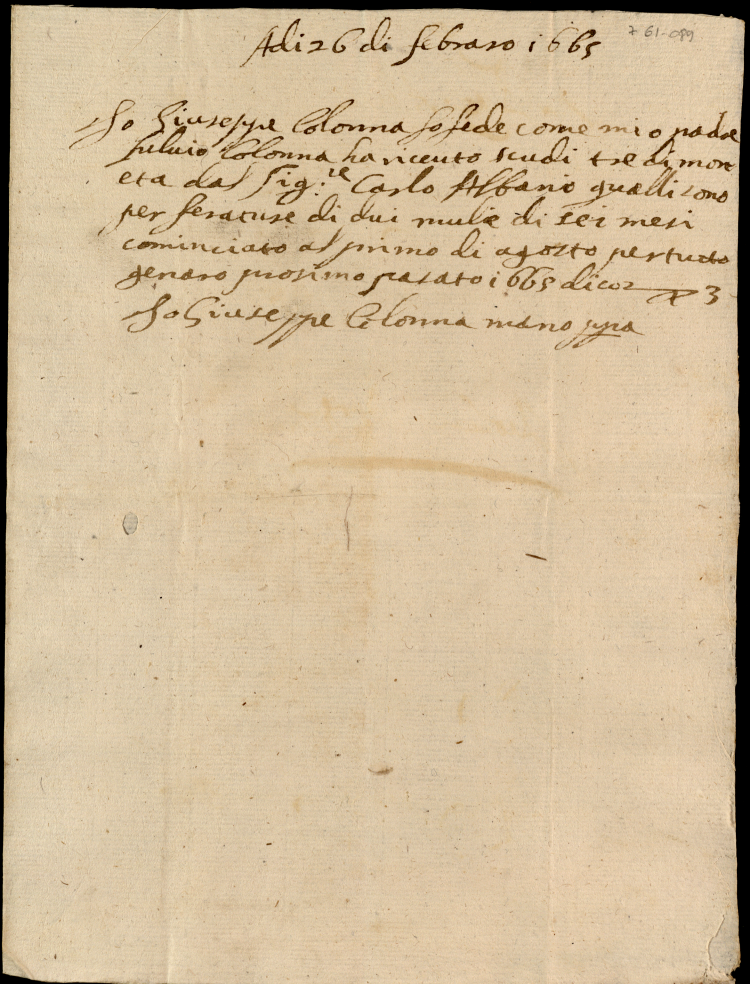 7 61-089
Adi 26 di febraro 1665
Io Giuseppe Colonna fo fede come mio padre
fuluio Colonna ha riceuto scudi tre di mon
eta dal Sig.re Carlo Albano qualli sono
per ferature di dui mulle di sei mesi
cominciato al primo di agosto per tutto
genaro prosimo pasato 1665 dico 3
Io Giuseppe Colonna mano ppa